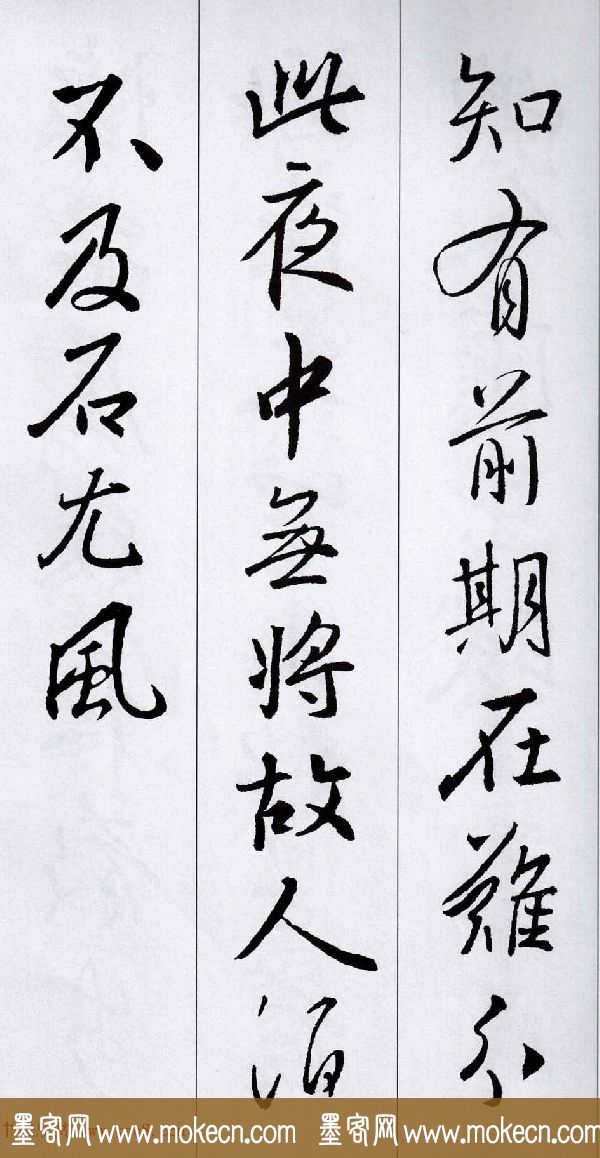 知有前期在難分
此夜中無將故人酒
不及石尤風
墨客网www.mokecn.com 墨客网www.mokecn.com